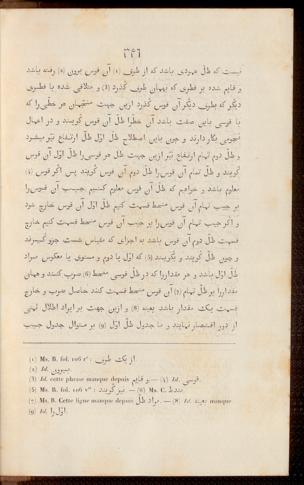 ٣٤٦
نیست که ظلّ عمودی باشد که از طرف (1) آن قوس بیرون (2) رفته باشد
و قایم شده بر قطری که بهمان طرف گذرد (3) و متلاقی شده با قطری
دیگر که بطرف دیگر آن قوس گذرد ازین جهت منتهای هر خطی را که
با قوسی باین صفت باشد آن خطرا ظلّ آن قوس گویند و در اعمال
نجومی بکار دارند و چون باین اصطلاح ظلّ اوّل ظلّ ارتفاع نیز میشود
و ظلّ دوم تمام ارتفاع نیز ازین جهت ظلّ هر قوسی را ظلّ اوّل آن قوس
گویند و ظلّ تمام آن قوس را ظلّ دوم آن قوس گویند پس اگر قوس (4)
معلوم باشد و خواهیم که ظلّ آن قوس معلوم کنیم جیب آن قوس را
بر جیب تمام آن قوس منحط قسمت کنیم ظلّ اوّل آن قوس خارج شود
و اگر جیب تمام آن قوس را بر جیب آن قوس منحط قسمت کنیم خارج
قسمت ظلّ دوم آن قوس باشد به اجزای که مقیاس شصت جزو گیرند
و چون ظلّ گویند و نگویند (5) که اوّل یا دوم و مستوی یا معکوس مراد
ظلّ اوّل باشد و هر مقدار را که در ظلّ قوسی منحط (6) ضرب کنند و همان
مقدار را بر ظلّ تمام (7) آن قوس منحط قسمت کنند حاصل ضرب و خارج
قسمت یک مقدار باشد بعینه (8) و ازین جهت بر ایراد اظلال ثمنی
از دور اقتصار نمایند و ما جدول ظلّ اوّل (9) بر منوال جدول جیب
(1) Ms. B. fol. 106 r° : از یک طرف.
(2) Id. بیرون.
(3) Id. cette phrase manque depuis و قایم. — (4) Id. قوسی.
(5) Ms. B. fol. 106 v° : نیز گویند. — (6) Ms. C.
(7) Ms. B. Cette ligne manque depuis مراد ظلّ. — (8) Id. بعینه manque
(9) Id. اوّل را.